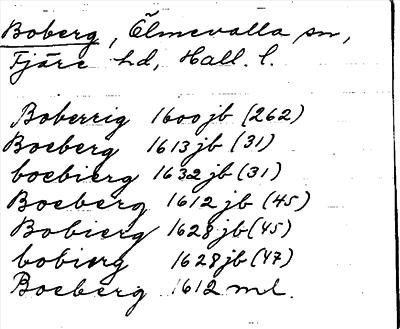 Boberg, Ölmevalla sn,
Fjäre hd, Hall. l.
Boberrig 1600 jb (262)
Boeberg 1613 jb (31)
boebierg 1632 jb (31)
Boeberg 1612 jb (45)
Bobierg 1628 jb (45)
bobierg 1628 jb (47)
Boeberg 1612 ml.